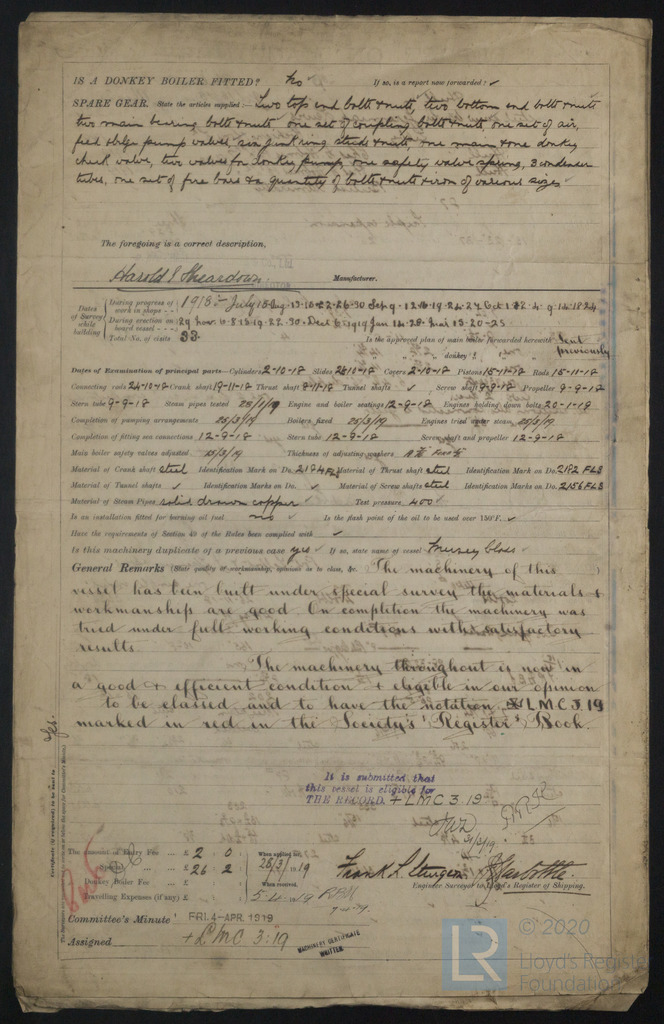 IS A DONKEY BOILER FITTED? No If so, is a report now forwarded? ✓
SPARE GEAR. State the articles supplied:— Two top end bolts & nuts, two bottom end bolts & nuts
two main bearing bolts & nuts one set of coupling bolts & nuts, one set of air,
feed & bilge pump valves, six junk ring studs & nuts, one main & one donkey
check valve, two valves for donkey pump, one safety valve spring, 3 condenser
tubes, one set of fire bars & a quantity of bolts & nuts & iron of various sizes
The foregoing is a correct description,
Harold S Sheardown Manufacturer.
Dates of Survey while building
During progress of work in shops - - 1918:- July 15 Aug 13-16-22-26-30 Sep 9-12-16-19-24-27 Oct 1-2-4-9-14-18-24
During erection on board vessel - - - 29 Nov. 6-8-15-19-22-30 Dec 6 1919 Jan 14-28 Mar 13-20-25
Total No. of visits 33. Is the approved plan of main boiler forwarded herewith Sent previously
" " " donkey " " "
Dates of Examination of principal parts—Cylinders 2-10-18 Slides 24-10-18 Covers 2-10-18 Pistons 15-11-18 Rods 15-11-18
Connecting rods 24-10-18 Crank shaft 19-11-18 Thrust shaft 8-11-18 Tunnel shafts ✓ Screw shaft 9-9-18 Propeller 9-9-18
Stern tube 9-9-18 Steam pipes tested 28/1/19 Engine and boiler seatings 12-9-18 Engines holding down bolts 20-1-19
Completion of pumping arrangements 25/3/19 Boilers fixed 25/3/19 Engines tried under steam 25/3/19
Completion of fitting sea connections 12-9-18 Stern tube 12-9-18 Screw shaft and propeller 12-9-18
Main boiler safety valves adjusted 13/3/19 Thickness of adjusting washers
Material of Crank shaft steel Identification Mark on Do. 2184 FLS Material of Thrust shaft steel Identification Mark on Do. 2182 FLS
Material of Tunnel shafts ✓ Identification Marks on Do. ✓ Material of Screw shafts steel Identification Marks on Do. 2156 FLS
Material of Steam Pipes solid drawn copper ✓ Test pressure 400 ✓
Is an installation fitted for burning oil fuel no ✓ Is the flash point of the oil to be used over 150°F. ✓
Have the requirements of Section 49 of the Rules been complied with ✓
Is this machinery duplicate of a previous case yes ✓ If so, state name of vessel Mersey Class ✓
General Remarks (State quality of workmanship, opinions as to class, &c. The machinery of this
vessel has been built under special survey the materials &
workmanship are good On completion the machinery was
tried under full working conditions with satisfactory
results.
The machinery throughout is now in
a good & efficient condition & eligible in our opinion
to be classed and to have the notation ✠ LMC 3.19
marked in red in the Society's Register Book.
It is submitted that
this vessel is eligible for
THE RECORD. + LMC 3.19
31/3/19
The amount of Entry Fee .. £ 2 : 0 : When applied for,
Special .. £ 26 : 2 : 26/3/1919
Donkey Boiler Fee .. £ : : When received,
Travelling Expenses (if any) £ : : 5.4.19
Frank L. Sturgeon
Engineer Surveyor to Lloyd's Register of Shipping.
Committee's Minute FRI. 4 APR. 1919
Assigned + LMC 3.19
MACHINERY CERTIFICATE
WRITTEN.
© 2020
LR
Lloyd's Register
Foundation